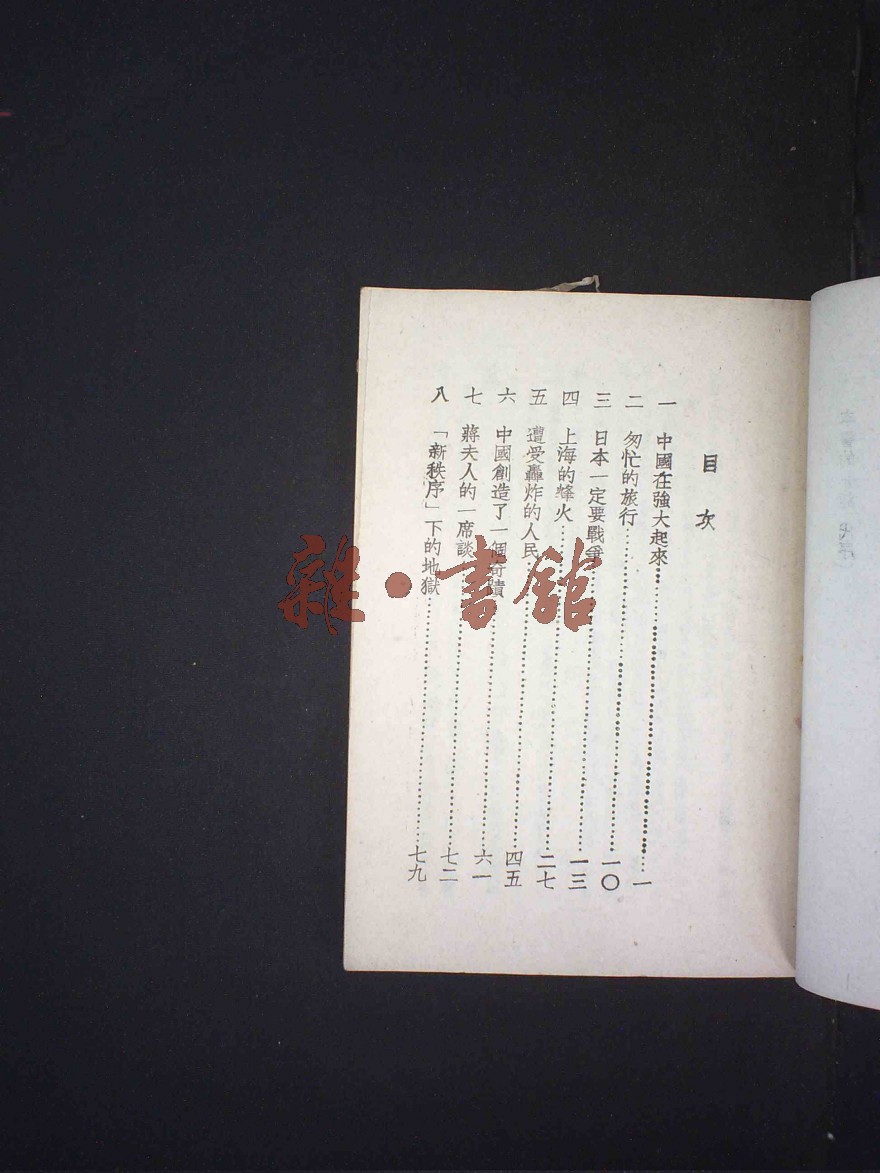 目次
一 中國在強大起來……一
二 匆忙的旅行……一〇
三 日本一定要戰爭……一三
四 上海的烽火……二七
五 遭受轟炸的人民……四五
六 中國創造了一個奇蹟……六一
七 蔣夫人的一席談……七二
八 「新秩序」下的地獄……七九
雜·書館